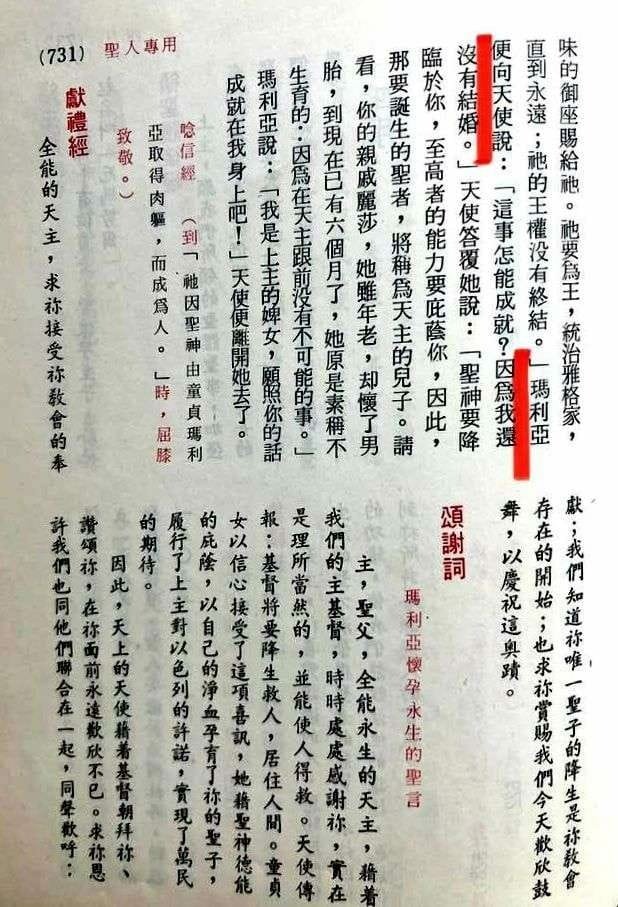 味的御座賜給祂。祂要爲王，統治雅格家，
直到永遠；祂的王權没有終結。」瑪利亞
便向天使說：「這事怎能成就？因爲我還
沒有結婚。」天使答覆她說：「聖神要降
臨於你，至高者的能力要庇蔭你，因此，
那要誕生的聖者，將稱爲天主的兒子。請
看，你的親戚麗莎，她雖年老，却懷了男
胎，到現在已有六個月了，她原是素稱不
生育的：因爲在天主跟前没有不可能的事。」
瑪利亞說：「我是上主的婢女，願照你的話
成就在我身上吧！」天使便離開她去了。
唸信經（到「祂因聖神由童貞瑪利
亞取得肉軀，而成爲人。」時，屈膝
致敬。）
獻禮經
全能的天主，求祢接受祢敎會的奉
(731) 聖人專用
獻；我們知道祢唯一聖子的降生是祢敎會
存在的開始；也求祢賞賜我們今天歡欣鼓
舞，以慶祝這奧蹟。
頌謝詞
瑪利亞懷孕永生的聖言
主，聖父，全能永生的天主，藉着
我們的主基督，時時處處感謝祢，實在
是理所當然的，並能使人得救。天使傳
報：基督將要降生救人，居住人間。童貞
女以信心接受了這項喜訊，她藉聖神德能
的庇蔭，以自己的淨血孕育了祢的聖子，
履行了上主對以色列的許諾，實現了萬民
的期待。
因此，天上的天使藉着基督朝拜祢、
讚頌祢，在祢面前永遠歡欣不已。求祢恩
許我們也同他們聯合在一起，同聲歡呼：